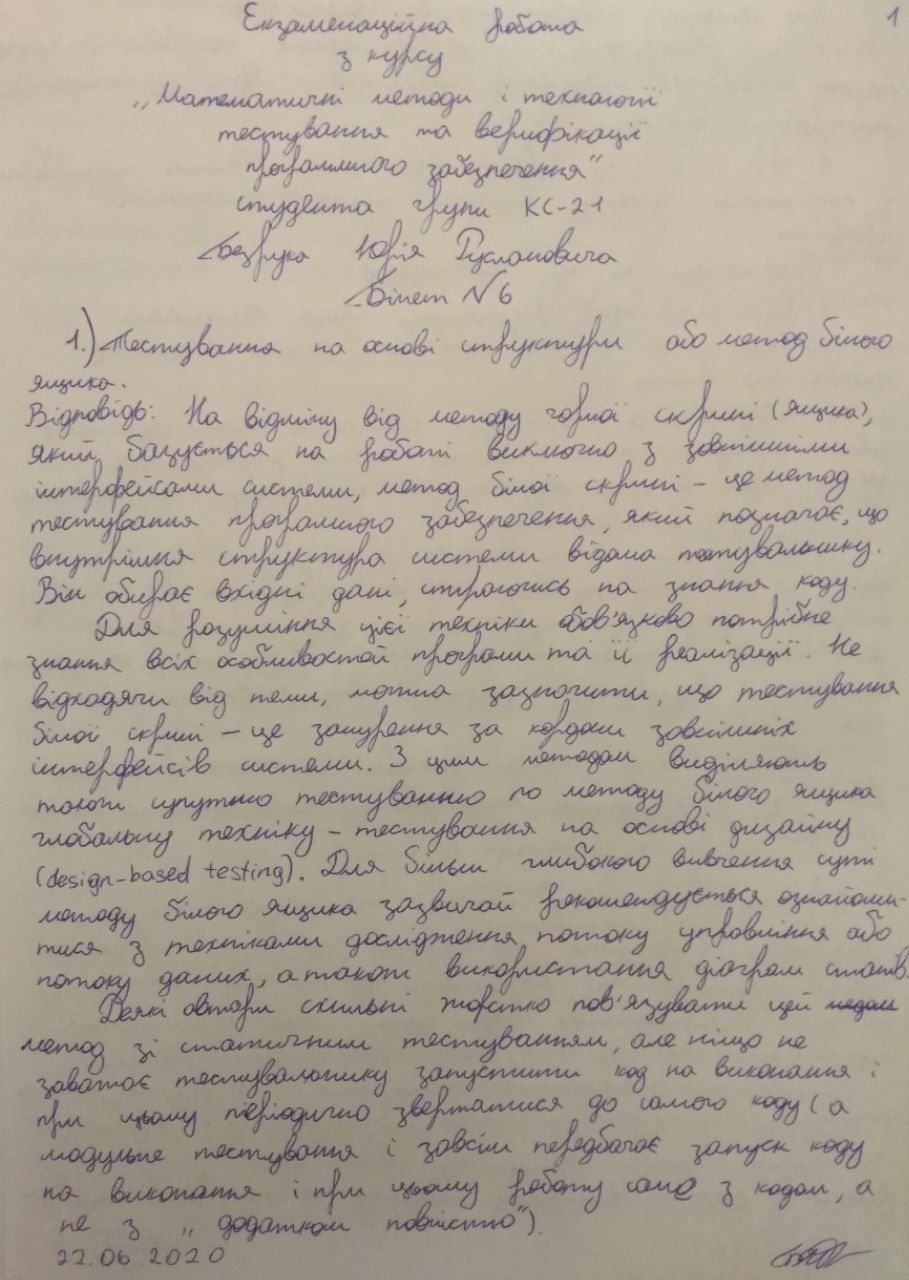 1
Екзаменаційна робота
з курсу
„Математичні методи і технології
тестування та верифікації
програмного забезпечення"
студента групи КС-21
Безрука Юрія Руслановича
Білет №6
1.) Тестування на основі структури або метод білого
ящика.
Відповідь: На відміну від методу чорної скрині (ящика),
який базується на роботі виключно з зовнішніми
інтерфейсами системи, метод білої скрині – це метод
тестування програмного забезпечення, який позначає, що
внутрішня структура системи відома тестувальнику.
Він обирає вхідні дані, спираючись на знання коду.
Для розуміння цієї техніки обов'язково потрібне
знання всіх особливостей програми та її реалізації. Не
відходячи від теми, можна зазначити, що тестування
білої скрині – це занурення за кордони зовнішніх
інтерфейсів системи. З цим методом виділяють
також супутню тестуванню по методу білого ящика
глобальну техніку – тестування на основі дизайну
(design-based testing). Для більш глибокого вивчення суті
методу білого ящика зазвичай рекомендується ознайоми-
тися з техніками дослідження потоку управління або
потоку даних, а також використання діаграм станів.
Деякі автори схильні жорстко пов'язувати цей
метод зі статичним тестуванням, але ніщо не
заважає тестувальнику запустити код на виконання і
при цьому періодично звертатися до самого коду (а
модульне тестування і зовсім передбачає запуск коду
на виконання і при цьому роботу саме з кодом, а
не з „додатком повністю").
22.06.2020